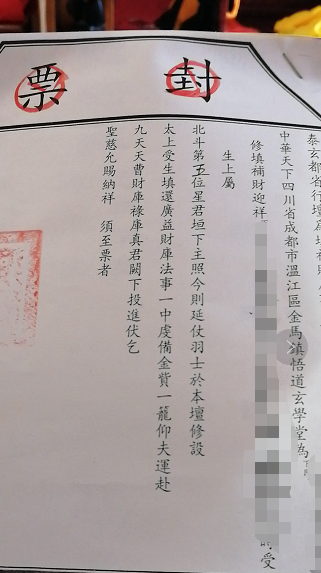 封票
泰玄都省行壇為
中華天下四川省成都市溫江區金馬鎮悟道玄學堂為
修填補財迎祥 受
生上屬
北斗第五位星君垣下主照今則延仗羽士於本壇修設
太上受生填還廣益財庫法事一中虔備金貲一龍仰夫運赴
九天天曹財庫祿庫真君闕下投進伏乞
聖慈允賜納祥 須至票者